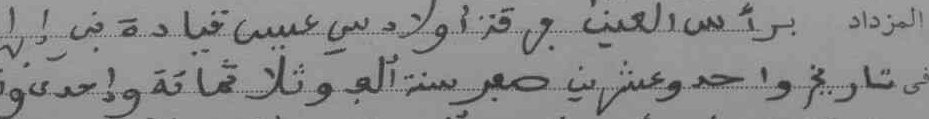 المزداد برأس العين فرقة أولاد سي عيسى قيادة بني
في تاريخ واحد وعشرين صفر سنة ألف وثلاثمائة وإحدى